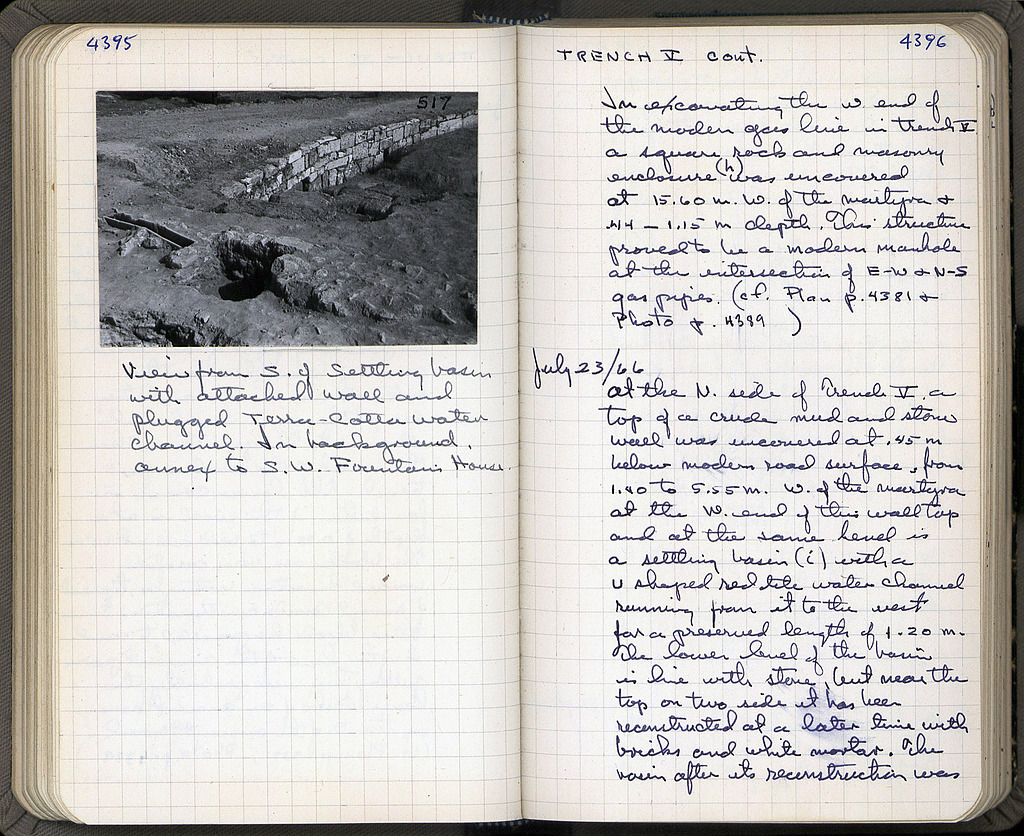 4395
517
View from S. of Settling basin
with attached wall and
plugged Terra-Cotta water
channel. In background,
annex to S.W. Fountain House.
4396
TRENCH V cont.
In excavating the w. end of
the modern gas line in Trench V
a square rock and masonry
enclosure (h) was uncovered
at 15.60 m. W. of the martyra +
.44 – 1.15 m depth. This structure
proved to be a modern manhole
at the intersection of E-W & N-S
gas pipes. (cf. Plan p. 4381 +
Photo p. 4389 )
July 23/66
at the N. side of Trench V. a
top of a crude mud and stone
wall was uncovered at .45 m
below modern road surface, from
1.40 to 5.55 m. W. of the martyra
at the W. end of this wall top
and at the same level is
a settling basin (i) with a
U shaped red tile water channel
running from it to the west
for a preserved length of 1.20 m.
The lower level of the basin
is line with stone, but near the
top on two side it has been
reconstructed at a later time with
bricks and white mortar. The
basin after its reconstruction was